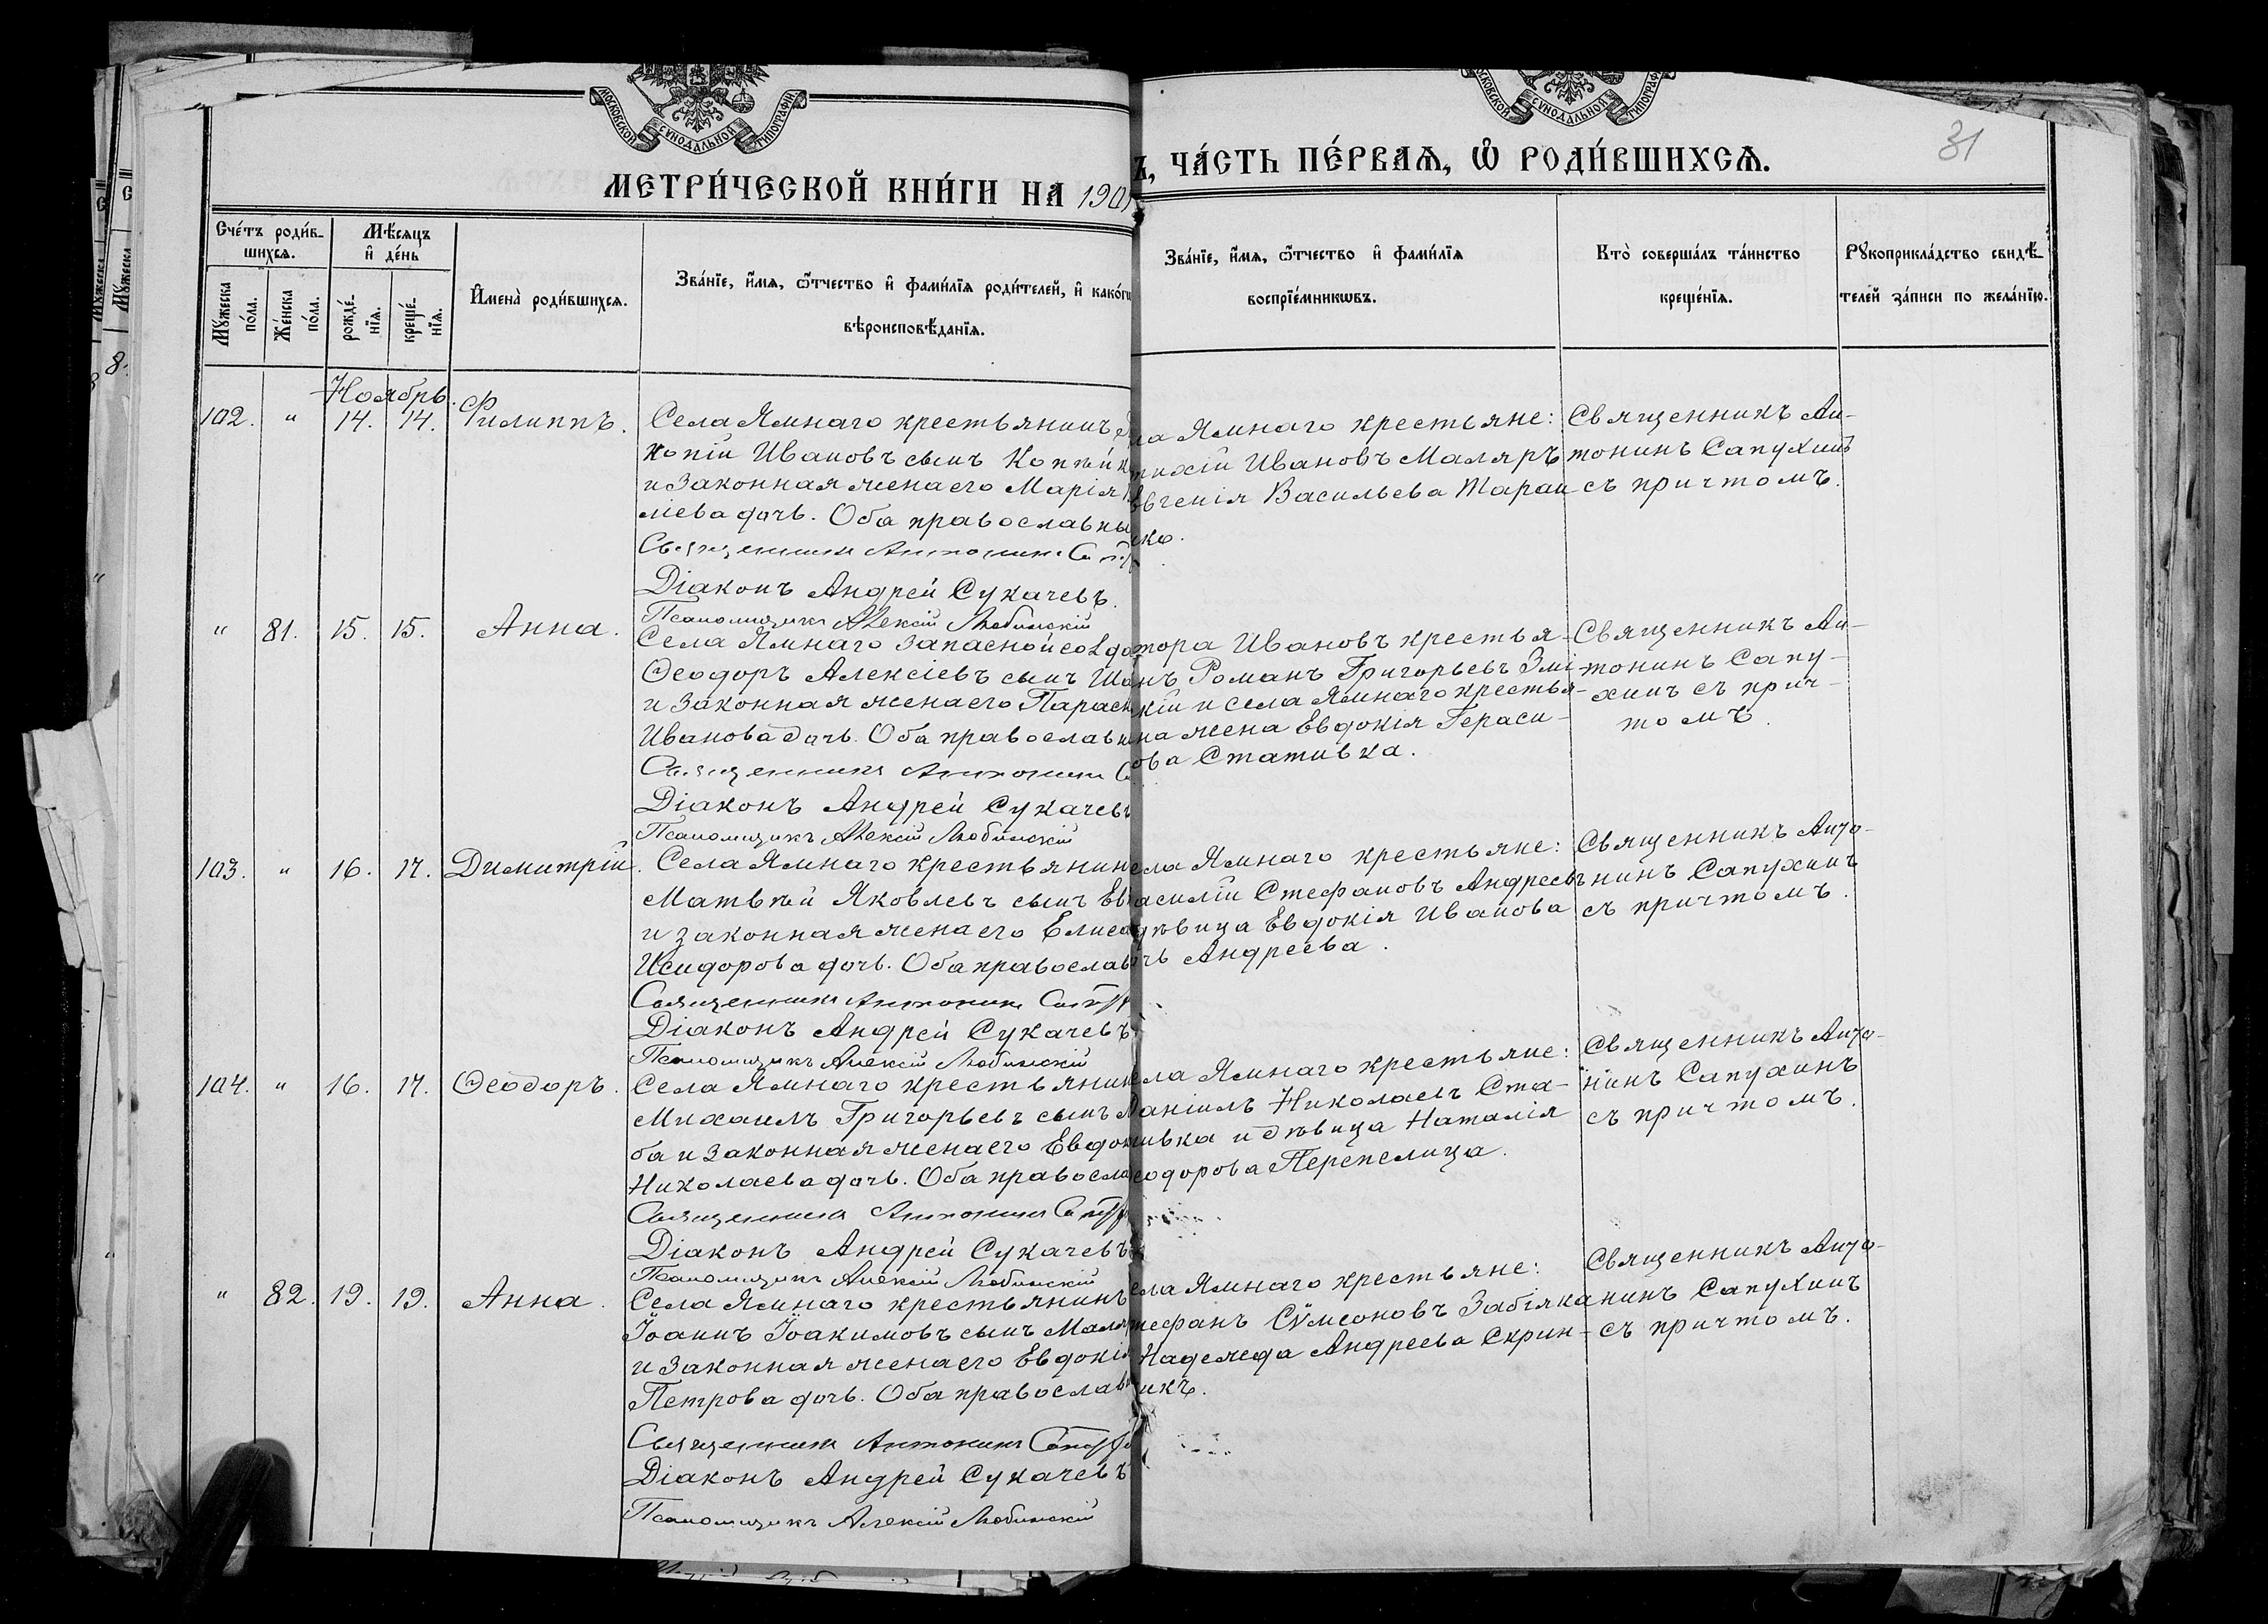 МОСКОВСКОЙ СѴНОДАЛЬНОЙ ТИПОГРАФІИ
МОСКОВСКОЙ СѴНОДАЛЬНОЙ ТИПОГРАФІИ
31
МЕТРИ́ЧЕСКОЙ КНИ́ГИ НА 190
Ъ, ЧА́СТЬ ПЕ́РВАѦ, Ѿ РОДИ́ВШИХСѦ.
Сче́тъ роди́в-
шихсѧ.
Мꙋ́жеска
по́ла.
Же́нска
по́ла.
Мѣ́сѧцъ
и҆ де́нь
рожде́-
нїѧ.
креще́-
нїѧ.
И҆мена̀ роди́вшихсѧ.
Зва́нїе, и҆́мѧ, ѻ҆́тчество и҆ фамѝлїѧ роди́телей, и҆ како́гѡ
вѣроисповѣ́данїѧ.
Зва́нїе, и҆́мѧ, ѻ҆́тчество и҆ фами́лїѧ
воспрїе́мникѡвъ.
Кто̀ соверша́лъ та́инство
креще́нїѧ.
Рꙋкоприкла́дство свидѣ́-
телей за́писи по жела́нїю.
Ноябрь.
102. " 14. 14. Филиппъ.
Села Ямнаго крестьянинъ
копій Ивановъ сынъ Коппѣйк
и законная жена его Марія
міева дочь. Оба православны
Священникъ Антонинъ
Діаконъ Андрей Сукачевъ.
Псаломщикъ Алексій Любинскій
ла Ямнаго крестьяне:
тихій Ивановъ Маляръ
Евгенія Васильева Таран
ко.
Священникъ Ан-
тонинъ Сапухинъ
съ причтомъ.
" 81. 15. 15. Анна.
Села Ямнаго запасной солда
Ѳеодоръ Алексіевъ сынъ Ша
и законная жена его Параск
Иванова дочь. Оба православн
Священникъ Антонинъ С
Діаконъ Андрей Сукачевъ
Псаломщикъ Алексій Любинскій
тора Ивановъ крестья-
нъ Романъ Григорьевъ Змі-
кій и села Ямнаго крестья-
на жена Евдокія Гераси-
ова Стативка.
Священникъ Ан-
тонинъ Сапу-
хинъ съ прич-
томъ.
103. " 16. 17. Димитрій.
Села Ямнаго крестьянин
Матвѣй Яковлевъ сынъ Ев
и законная жена его Елиса
Исидорова дочь. Оба православ
Священникъ Антонинъ Сапух
Діаконъ Андрей Сукачевъ
Псаломщикъ Алексій Любинскій
ела Ямнаго крестьяне:
асилій Стефановъ Андреевъ
дѣвица Евдокія Иванова
чь Андреева.
Священникъ Анто-
нинъ Сапухинъ
съ причтомъ.
104. " 16. 17. Ѳеодоръ.
Села Ямнаго крестьянин
Михаилъ Григорьевъ сынъ
ба и законная жена его Евдок
Николаева дочь. Оба правосла
Священникъ Антонинъ Сапух
Діаконъ Андрей Сукачевъ
Псаломщикъ Алексій Любинскій
ела Ямнаго крестьяне:
Даніилъ Николаевъ Ста-
ивка и дѣвица Наталія
еодорова Перепелица.
Священникъ Анто-
нинъ Сапухинъ
съ причтомъ.
" 82. 19. 19. Анна.
Села Ямнаго крестьянинъ
Іоаннъ Іоакимовъ сынъ Маля
и законная жена его Евдокія
Петрова дочь. Оба православ
Священникъ Антонинъ Сапух
Діаконъ Андрей Сукачевъ
Псаломщикъ Алексій Любинскій
ела Ямнаго крестьяне:
тефанъ Сѵмеоновъ Забіяка
Надежда Андреева Скрин-
икъ.
Священникъ Анто-
нинъ Сапухинъ
съ причтомъ.